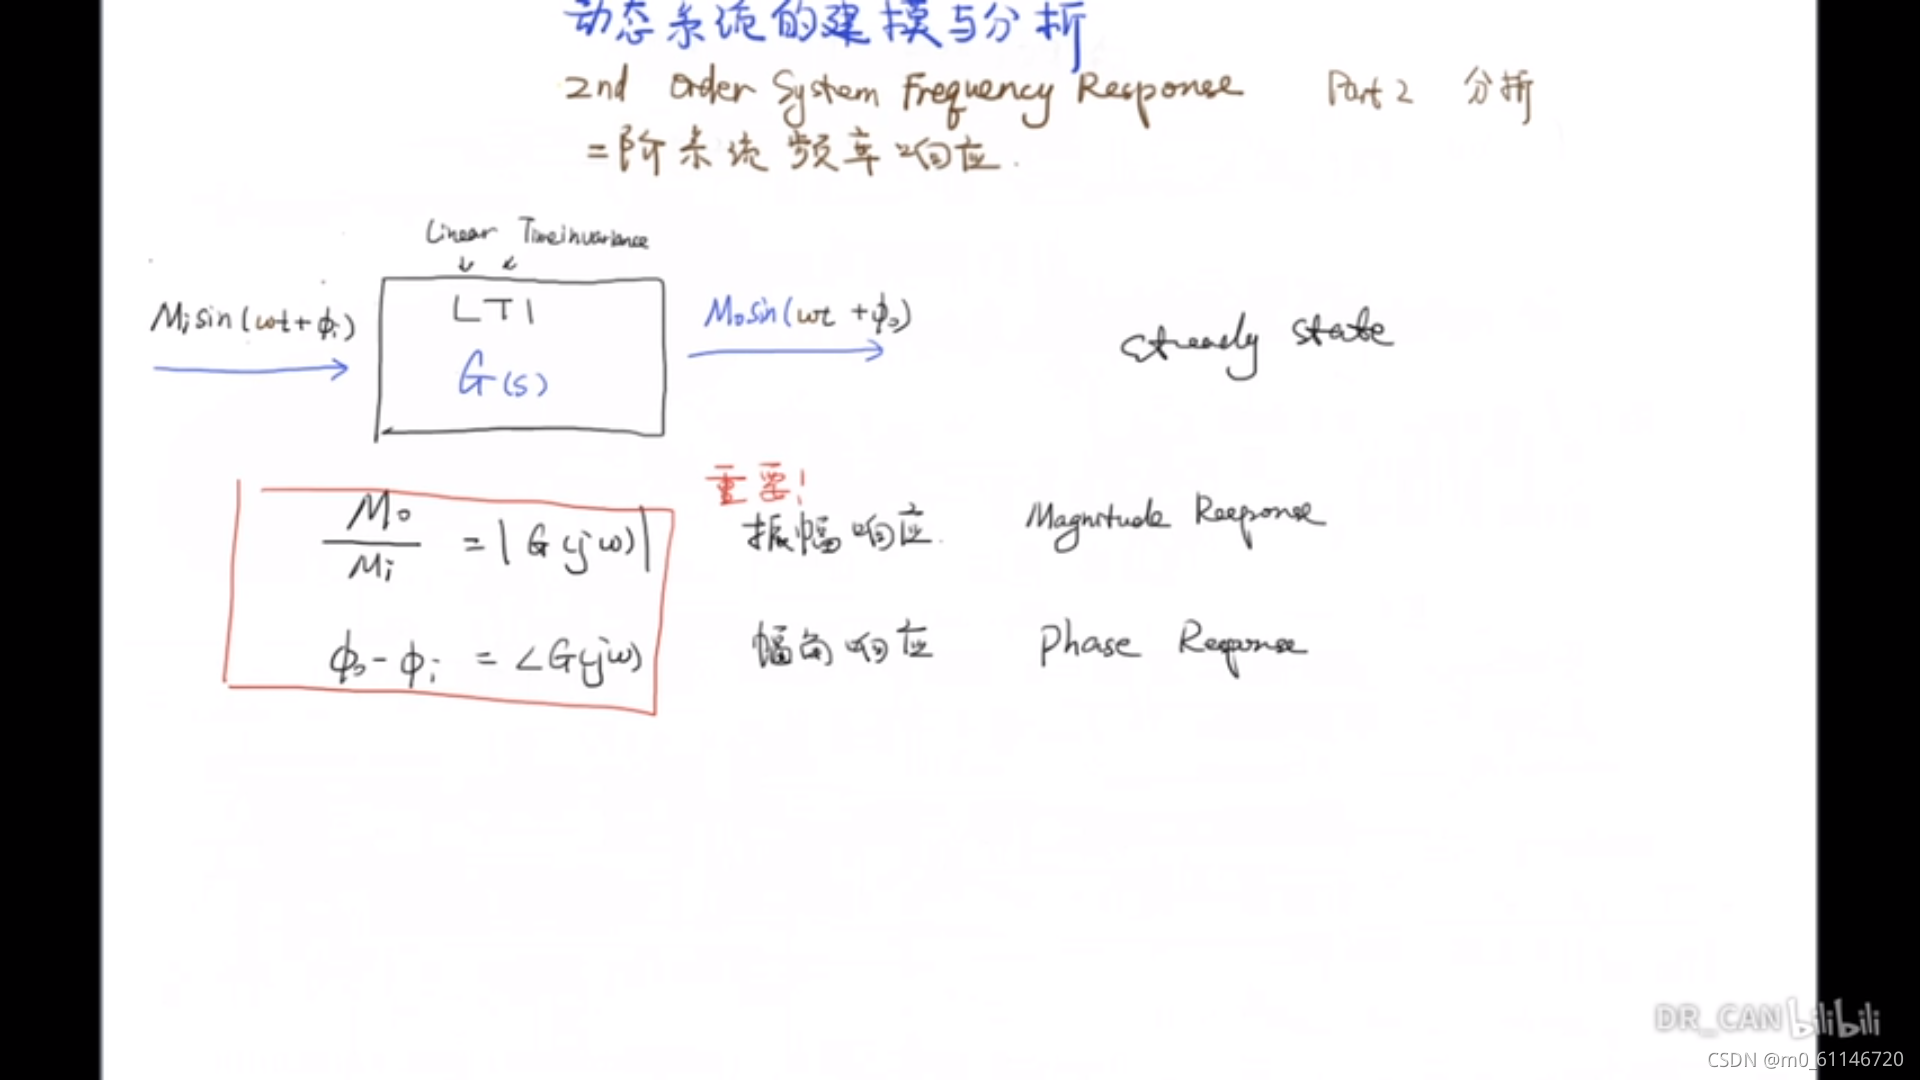 动态系统的建模与分析
2nd Order System Frequency Response Part 2 分析
二阶系统频率响应
Linear Time invariance
LTI
G(s)
Misin(ωt+ϕi)
Mosin(ωt+ϕo)
Steady state
重要!
Mo/Mi = |G(jω)| 振幅响应 Magnitude Response
ϕo-ϕi = ∠G(jω) 幅角响应 Phase Response
DR_CAN bilibili
CSDN @m0_61146720